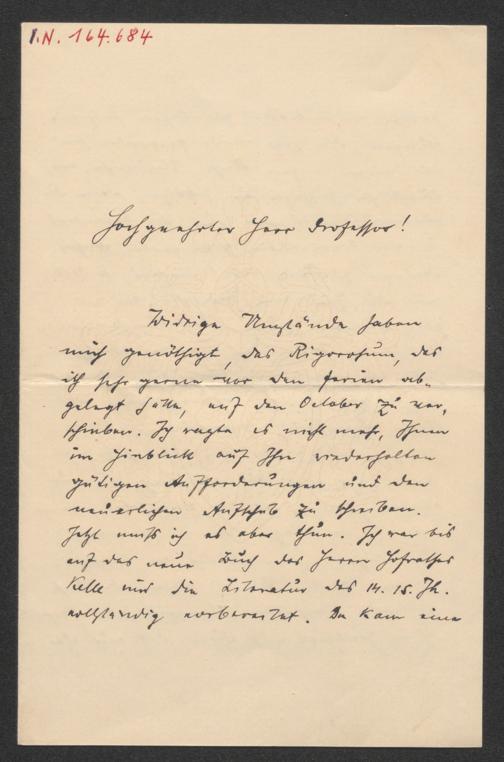 I.N. 164.684
Hochgeehrter Herr Professor!
Widrige Umstände haben
mich genöthigt, das Rigorosum, das
ich sehr gerne vor den Ferien ab-
gelegt hätte, auf den October zu ver-
schieben. Ich wagte es nicht mehr, Ihnen
im Hinblick auf Ihre wiederholten
gütigen Aufforderungen und den
neuerlichen Aufschub zu schreiben.
Jetzt muß ich es aber thun. Ich war bis
auf das neue Buch des Herrn Hofrathes
Kelle und die Literatur des 14. 15. Jh.
vollständig vorbereitet. Da kam eine